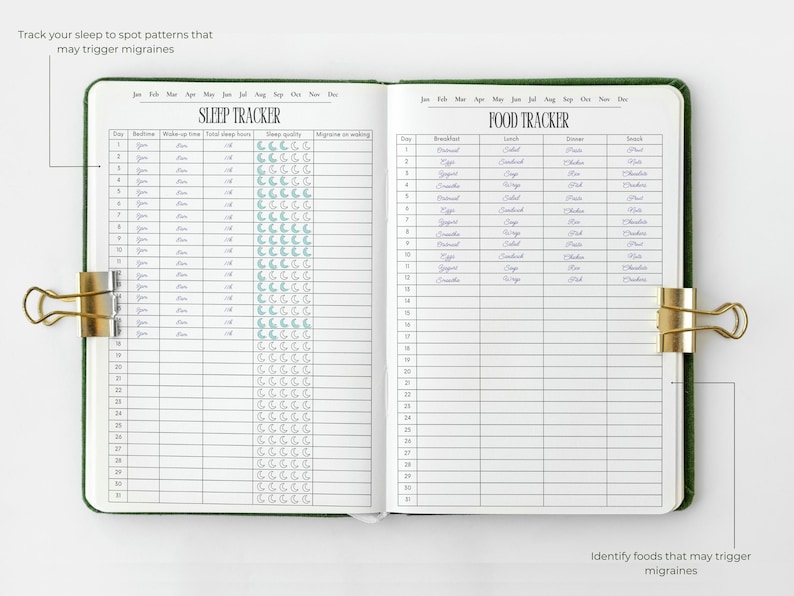 Track your sleep to spot patterns that
may trigger migraines
Jan Feb Mar Apr May Jun Jul Aug Sep Oct Nov Dec
SLEEP TRACKER
Day Bedtime Wake-up time Total sleep hours Sleep quality Migraine on waking
1 9pm 8am 11h
2 9pm 8am 11h
3 9pm 8am 11h
4 9pm 8am 11h
5 9pm 8am 11h
6 9pm 8am 11h
7 9pm 8am 11h
8 9pm 8am 11h
9 9pm 8am 11h
10 9pm 8am 11h
11 9pm 8am 11h
9pm 8am 11h
9pm 8am 11h
9pm 8am 11h
9pm 8am 11h
9pm 8am 11h
9pm 8am 11h
18
19
20
21
22
23
24
25
26
27
28
29
30
31
Jan Feb Mar Apr May Jun Jul Aug Sep Oct Nov Dec
FOOD TRACKER
Day Breakfast Lunch Dinner Snack
1 Oatmeal Salad Pasta Fruit
2 Eggs Sandwich Chicken Nuts
3 Yogurt Soup Rice Chocolate
4 Smoothie Wraps Fish Crackers
5 Oatmeal Salad Pasta Fruit
6 Eggs Sandwich Chicken Nuts
7 Yogurt Soup Rice Chocolate
8 Smoothie Wraps Fish Crackers
9 Oatmeal Salad Pasta Fruit
10 Eggs Sandwich Chicken Nuts
11 Yogurt Soup Rice Chocolate
12 Smoothie Wraps Fish Crackers
13
14
15
16
17
18
19
20
21
22
23
24
25
26
27
28
29
30
31
Identify foods that may trigger
migraines